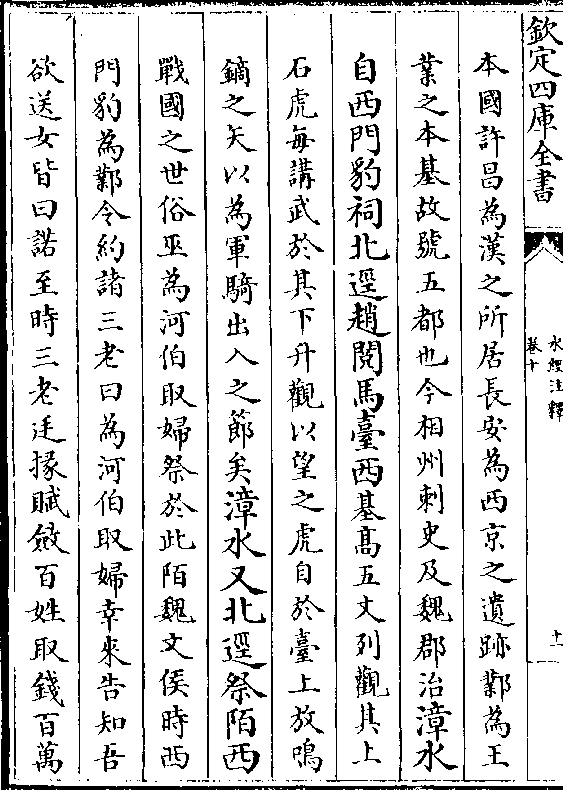 欽定四庫全書
水經注釋
卷十
十一
本國許昌為漢之所居長安為西京之遺跡鄴為王
業之本基故號五都也今相州刺史及魏郡治漳水
自西門豹祠北逕趙閱馬臺西基髙五丈列觀其上
石虎每講武於其下升觀以望之虎自於臺上放鳴
鏑之矢以為軍騎出入之節矣漳水又北逕祭陌西
戰國之世俗巫為河伯取婦祭於此陌魏文侯時西
門豹為鄴令約諸三老曰為河伯取婦幸來告知吾
欲送女皆曰諾至時三老廷掾賦斂百姓取錢百萬